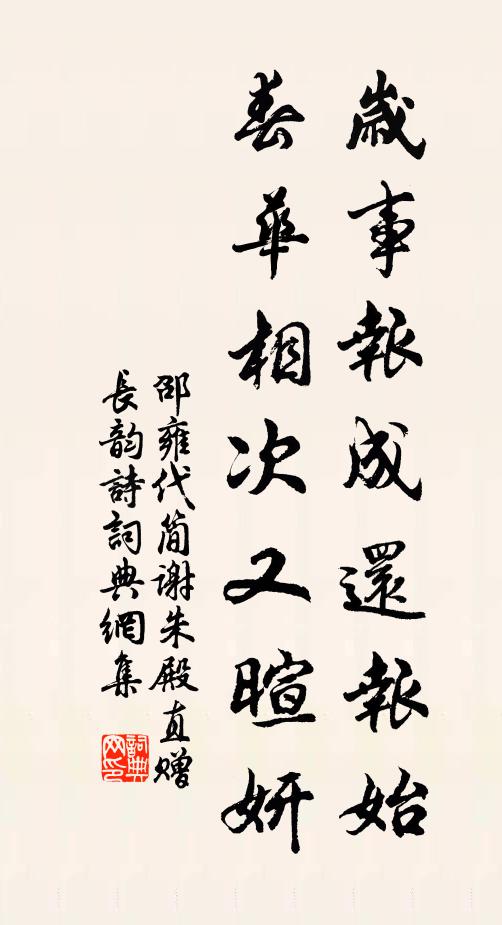 歲事報成還報始
春華相次又暄妍
邵雍代简谢朱殿直赠
長韵詩詞典網集
詞典
网印